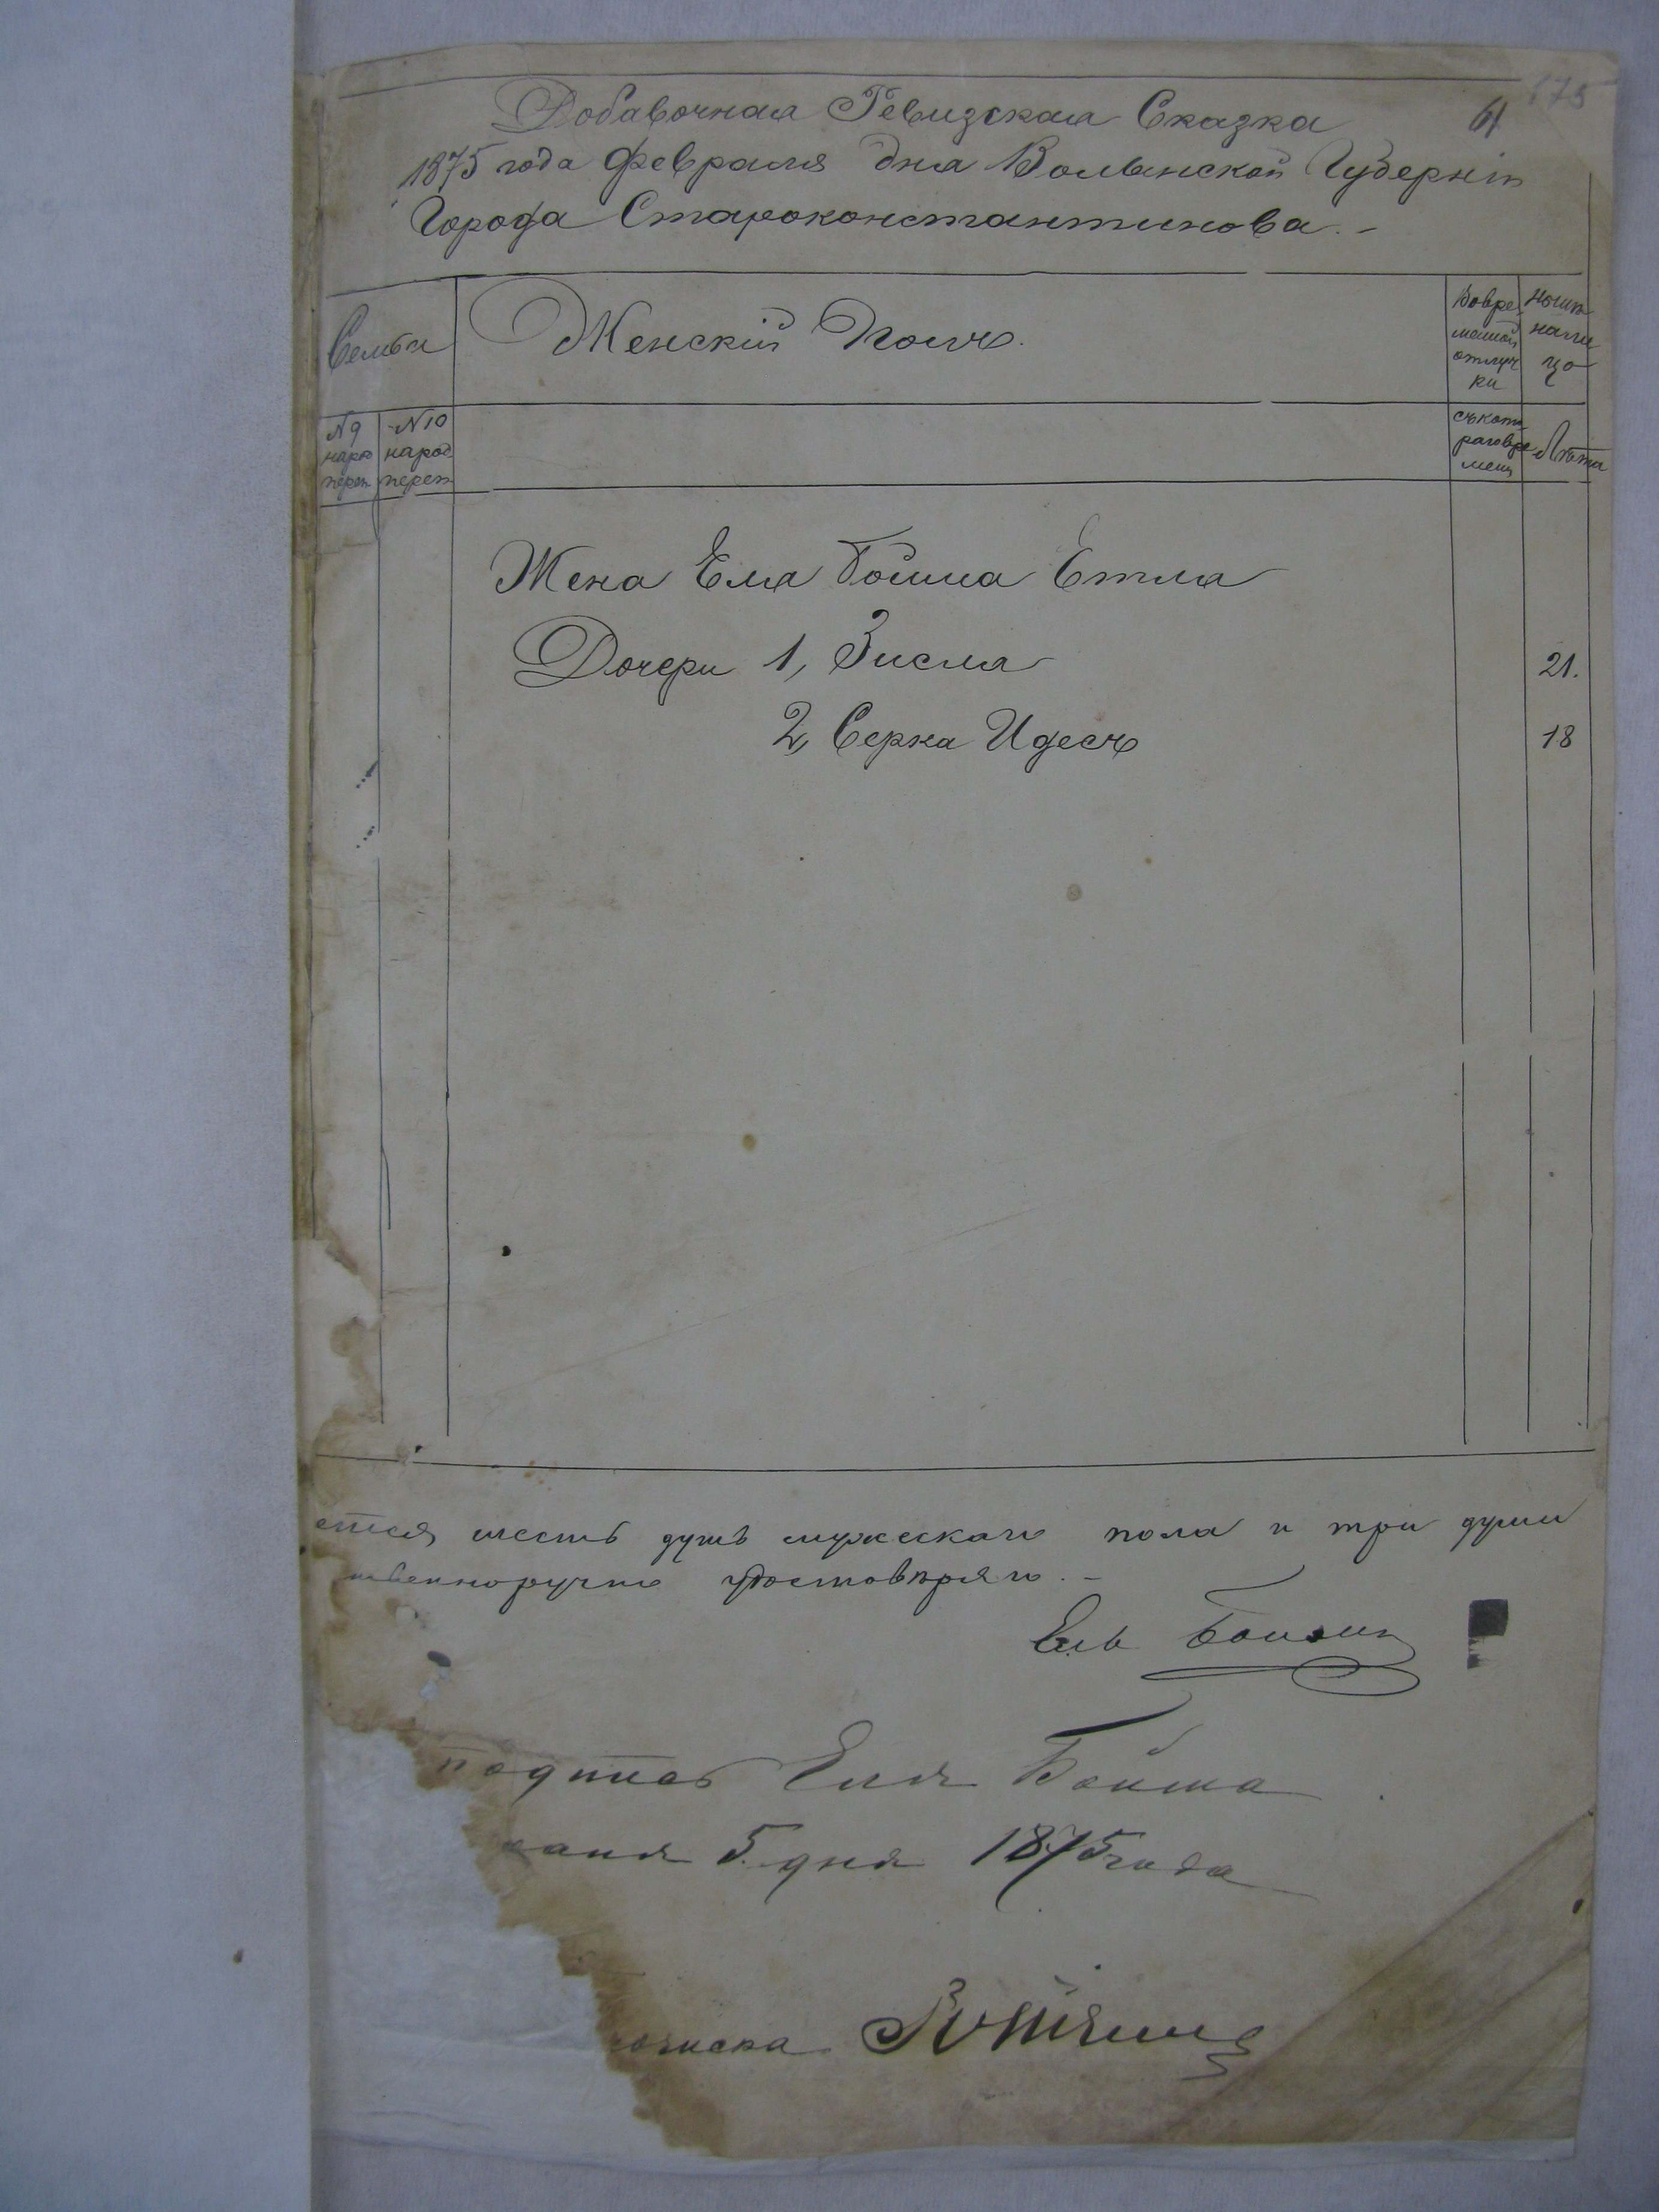 175
61
Добавочная Ревизская Сказка
1875 года февраля дня Волынской Губерніи
Города Староконстантинова. -
Семьи
Женскій Полъ.
Вовре
менной
отлуч
ки
Нынѣ
нали
цо
№ 9
народ
переп
№ 10
народ.
переп
съкото
раговре
мени
Лѣта
Жена Еля Бойма Етля
Дочери 1, Зисля 21.
2, Серка Идесъ 18
ется, шесть душъ мужескаго пола и три души
твенноручно удостовѣряю. -
Ель Бойм
подпись Еля Бойма
5. дня 1875 года